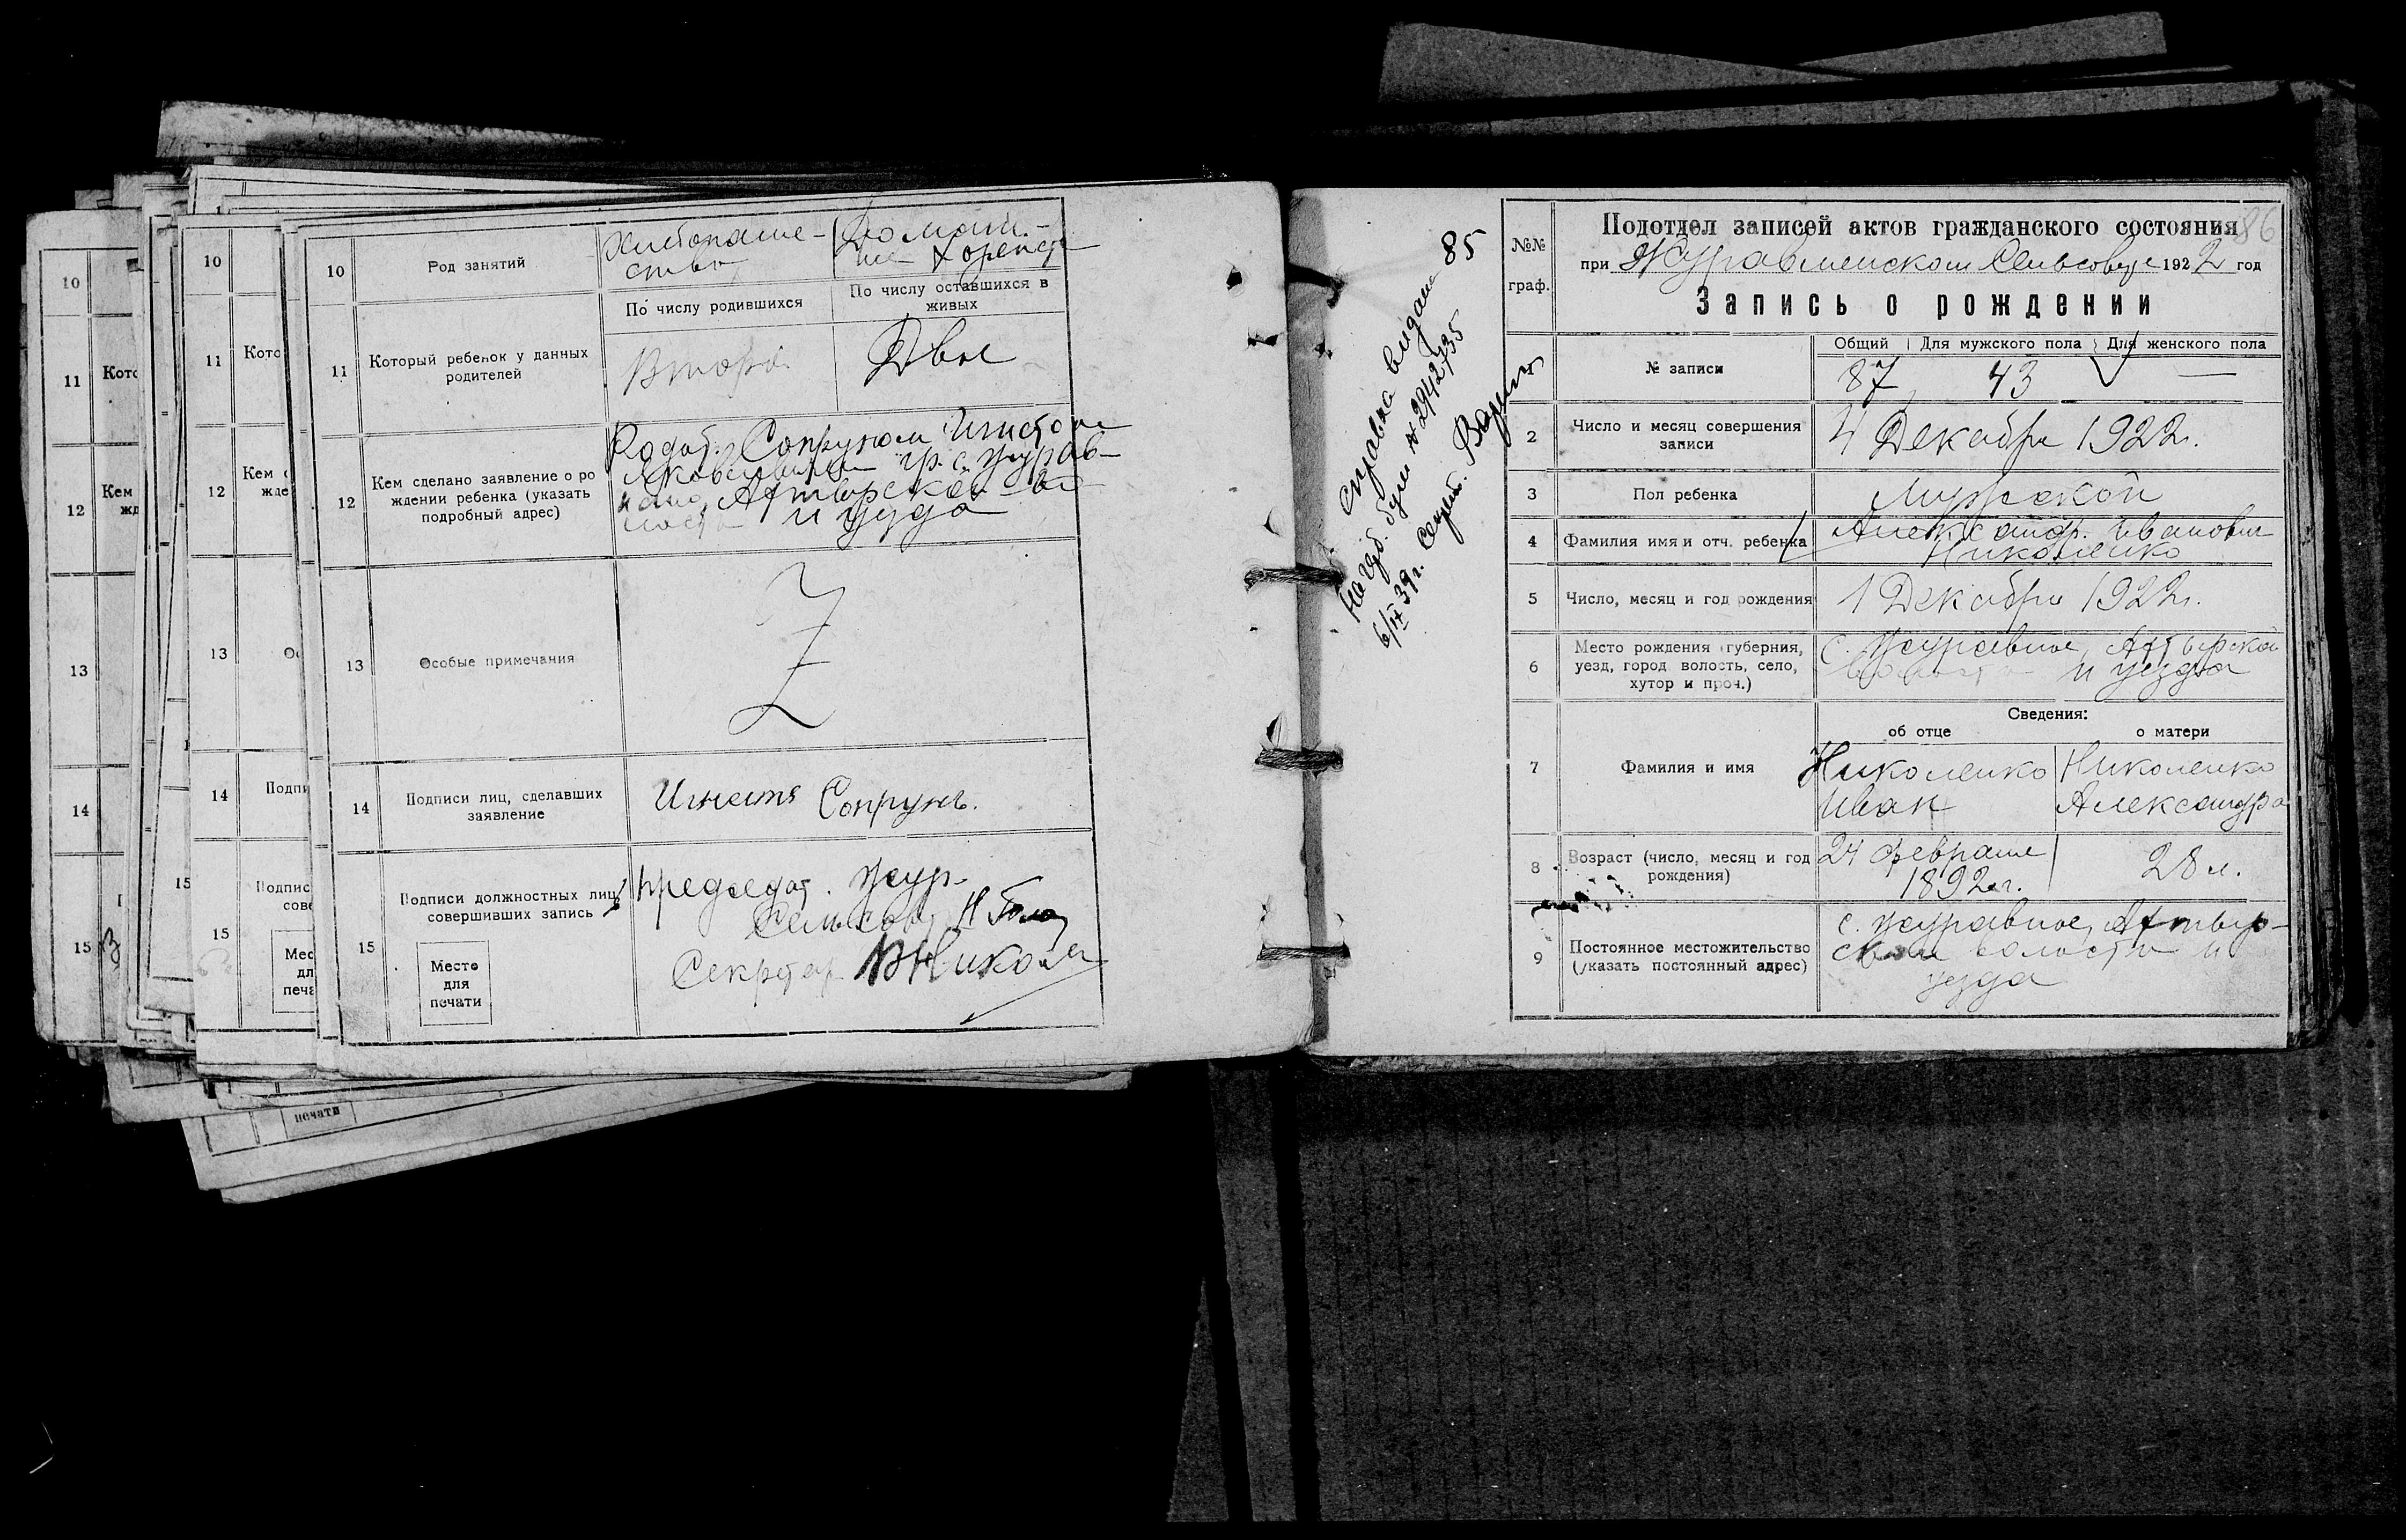 10
Род занятий
Хлебопаше-
ство
Домаш.-
11
Который ребенок у данных
родителей
По числу родившихся
По числу оставшихся в
живых
Второй
Двое
12
Кем сделано заявление о ро
ждении ребенка (указать
подробный адрес)
Сопруном Игнатом
Яковлевичем гр. с. Журав-
Ахтырской во-
и уезда
13
Особые примечания
Z
14
Подписи лиц, сделавших
заявление
Игнатя Сопрунъ.
15
Подписи должностных лиц,
совершивших запись
Место
для
печати
Председат. Жур.
Сельсов
Секретар
10
11
Кото
12
Кем
жде
13
Ос
14
Подпи
15
Подпис
сове
Мес
дл
печа
10
11
Кото
12
Кем
жд
13
14
15
печати
85
справка выдана
6/IX 39 г. секрет.
86
№№
граф.
Подотдел записей актов гражданского состояния
при Журавленском Сельсовете 1922 год
Запись о рождении
Общий
Для мужского пола
Для женского пола
1
№ записи
87
43
—
2
Число и месяц совершения
записи
4 Декабря 1922г.
3
Пол ребенка
Мужской
4
Фамилия имя и отч. ребенка
Александр. Иванович
Николенко
5
Число, месяц и год рождения
1 Декабря 1922г.
6
Место рождения (губерния,
уезд, город волость, село,
хутор и проч.)
с. Журавное, Ахтырской
волости и уезда
Сведения:
об отце
о матери
7
Фамилия и имя
Николенко
Иван
Николенко
Александра
8
Возраст (число, месяц и год
рождения)
24 февраля
1892 г.
28 л.
9
Постоянное местожительство
(указать постоянный адрес)
с. Журавное, Ахтыр-
ской волости и
уезда